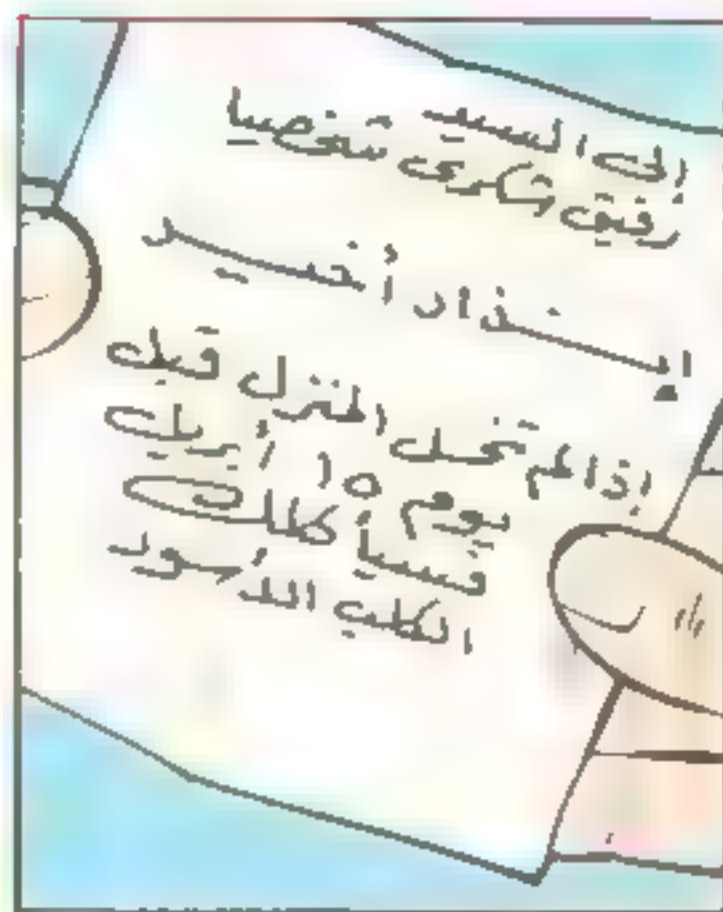 إلى السيد
رفيق شكرى شخصيا
إنذار أخير
إذا لم تخل المنزل قبل
يوم ١٥ أبريل
فسيأكلك
الكلب الأسود